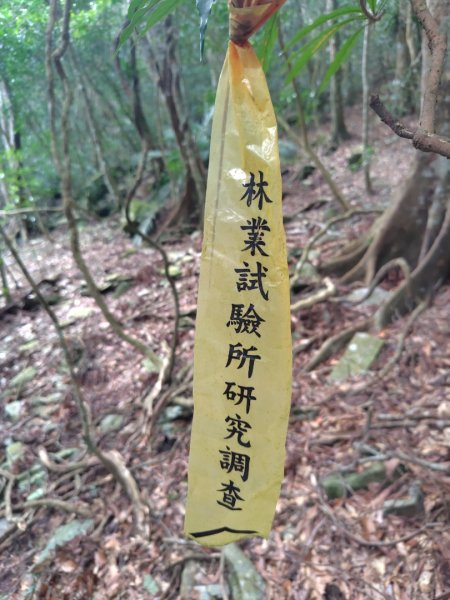 林業試驗所研究調查